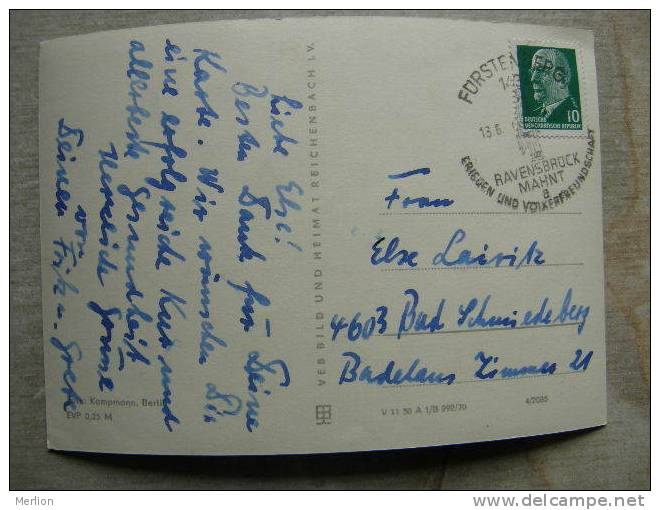 Liebe Else!
Besten Dank für Deine
Karte. Wir wünschen Dir
eine erfolgreiche Kur und
allerbeste Gesundheit
Herzliche Grüsse
von
Deinen Fritz u. Grete
Kampmann, Berlin
EVP 0,25 M
VEB BILD UND HEIMAT REICHENBACH I. V.
V 11 50 A 1/B 992/70
4/2085
FÜRSTENBERG
13.6.
RAVENSBRÜCK
MAHNT
a
FRIEDEN UND VÖLKERFREUNDSCHAFT
10
DEUTSCHE
DEMOKRATISCHE REPUBLIK
Frau
Else Lairitz
4603 Bad Schmiedeberg
Badehaus Zimmer 21
Merlion
http://www.delcampe.net